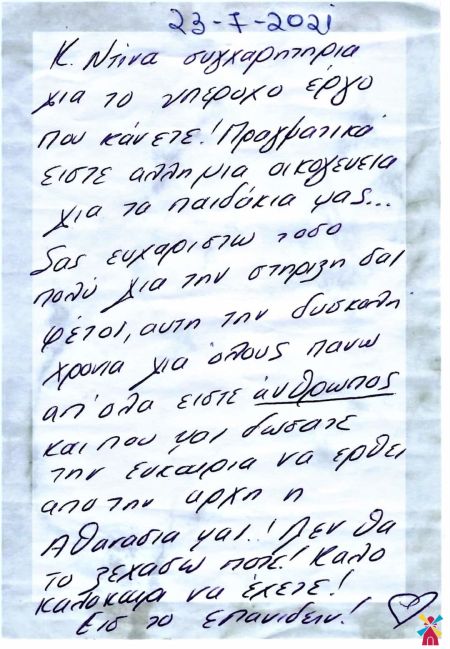 23-7-2021
Κ. Ντίνα συγχαρητηρια
για το υπεροχο έργο
που κάνετε! Πραγματικά
ειστε αλλη μια οικογενεια
για τα παιδάκια μας...
Σας ευχαριστω τοσο
πολύ για την στηριξη σας
φέτος, αυτη την δυσκολη
χρονια για όλους πανω
απ' ολα ειστε άνθρωπος
και που μου δωσατε
την ευκαιρια να ερθει
απο την αρχη η
Αθανασια μας..! Δεν θα
το ξεχασω ποτέ! Καλο
καλοκαιρι να έχετε!
Εις το επανιδειν!